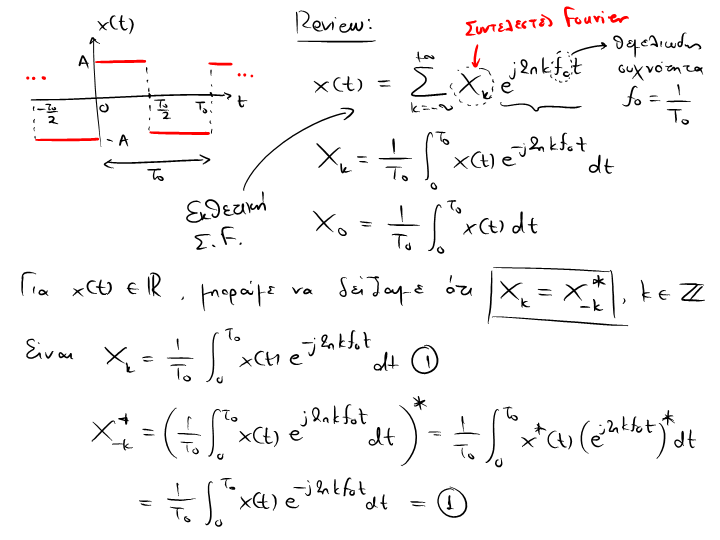 x(t)
A
...
...
-T₀/2
0
T₀/2
T₀
t
-A
T₀
Review:
Συντελεστές Fourier
x(t) = Σ_{k=-∞}^{+∞} X_k e^{j2πkf₀t}
θεμελιώδης
συχνότητα
f₀ = 1/T₀
X_k = 1/T₀ ∫₀^{T₀} x(t) e^{-j2πkf₀t} dt
Εκθετική
Σ.F.
X₀ = 1/T₀ ∫₀^{T₀} x(t) dt
Για x(t) ∈ ℝ, μπορούμε να δείξουμε ότι X_k = X*_{-k}, k ∈ ℤ
Είναι X_k = 1/T₀ ∫₀^{T₀} x(t) e^{-j2πkf₀t} dt ①
X*_{-k} = (1/T₀ ∫₀^{T₀} x(t) e^{j2πkf₀t} dt)* = 1/T₀ ∫₀^{T₀} x*(t) (e^{j2πkf₀t})* dt
= 1/T₀ ∫₀^{T₀} x(t) e^{-j2πkf₀t} dt = ①